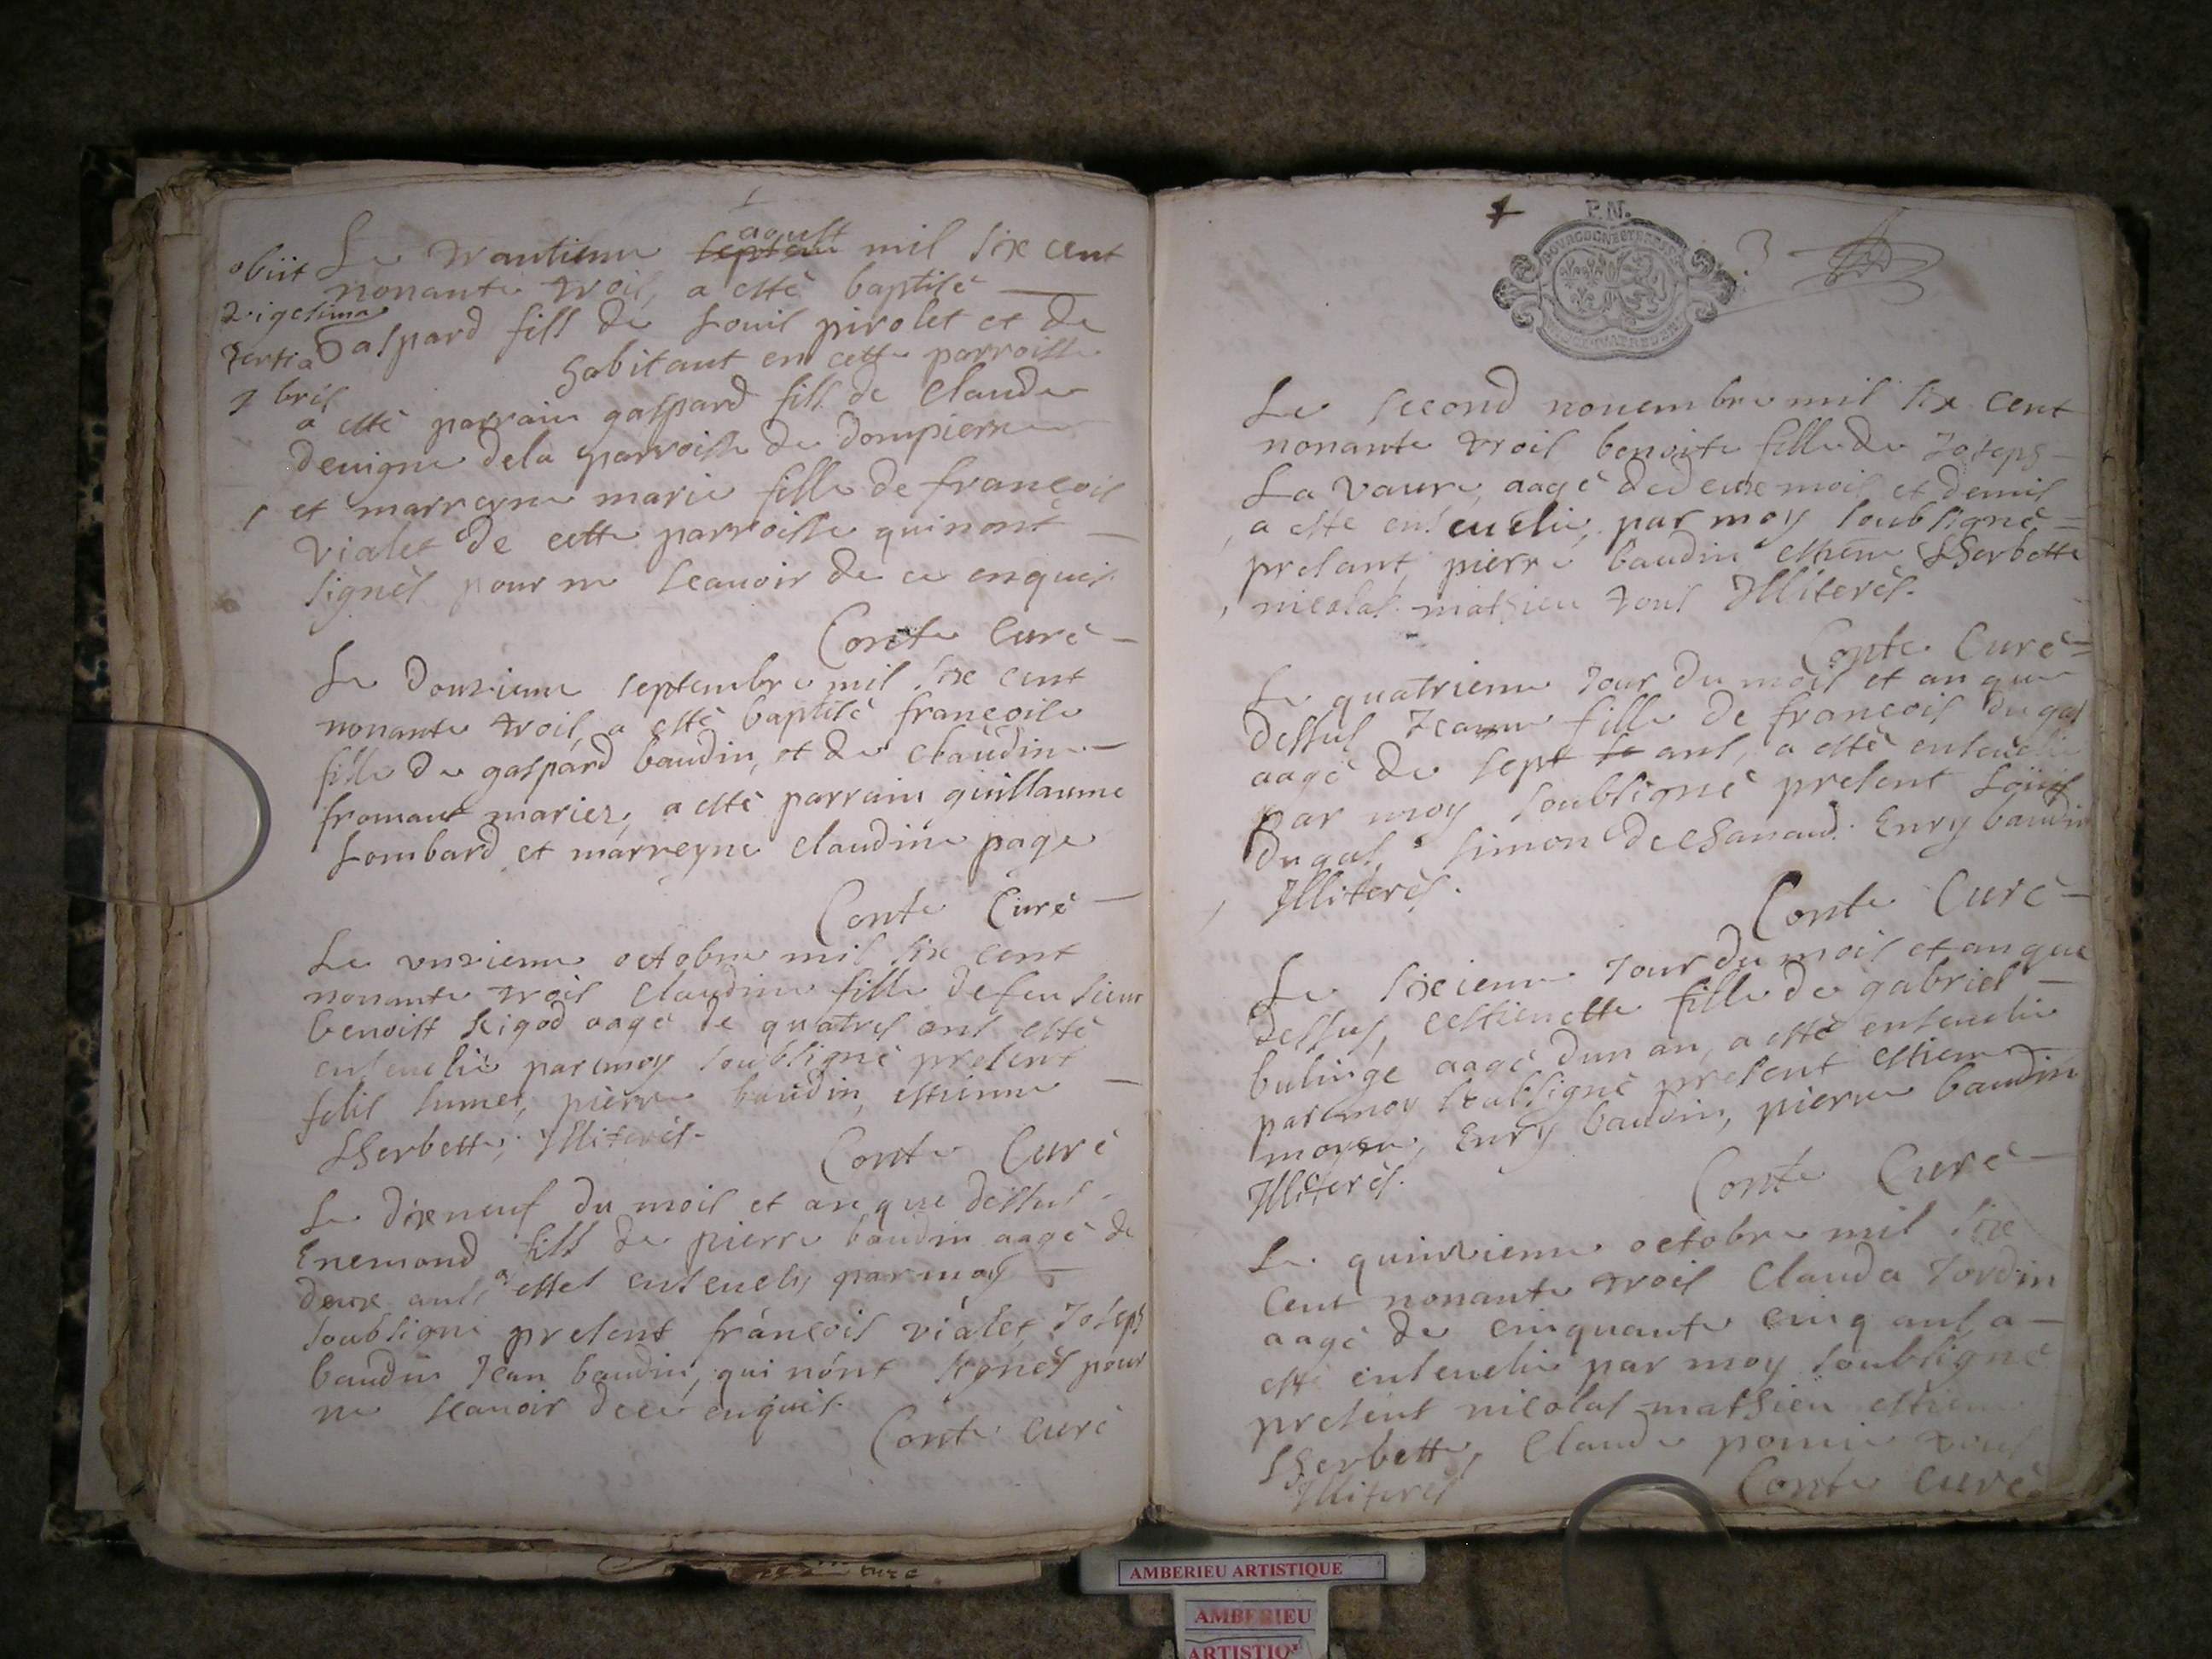 obiit
vigesima
tertia
7 bris
Le trantieme septem aoust mil six cent
nonante trois, a esté baptisé
Gaspard fils de Louis pirolet et de
habitant en cette parroisse
a esté parrain gaspard fils de Claude
devigne dela parroisse de dompierre
et marreyne marie fille de francois
vialet de cette parroisse qui nont
signés pour ne scavoir de ce enquis
Conte Curé
Le douzieme septembre mil six cent
nonante trois, a esté baptisé francoise
fille de gaspard baudin, et de claudine
fromant mariez, a esté parrain guillaume
Lombard et marreyne claudine page
Conte Curé
Le unzieme octobre mil six cent
nonante trois Claudine fille de feu sieur
benoist Rigod aagé de quatres ans esté
ensevelie par moy soubsigné present
felis lumet, pierre baudin, estienne
Lherbette, Illiterés.
Conte Curé
Le dixneuf du mois et an que dessus
Enemond fils de pierre baudin aagé de
deux ans a estes ensevely par moy
soubsigné present francois vialet, Joseph
baudin Jean baudin, qui nont signés pour
ne scavoir de ce enquis.
Conte curé
P.N.
3
Le second novembre mil six cent
nonante trois benoite fille de Joseph
La vaure, aagé de deux mois et demis
a esté ensevelie, par moy soubsigné
presant, pierre baudin estiene Lherbette
nicolas mathieu tous Illiterés.
Conte Curé
Le quatrieme Jour du mois et an que
dessus Jeanne fille de francois du gas
aagé de sept se ans, a esté ensevelie
par moy soubsigné present Louis
dugas, simon de chanaud. Enry baudin
Illiterés.
Conte Curé
Le sixieme Jour du mois et an que
dessus, estienette fille de gabriel
bulinge aagé dun an, a esté ensevelie
par moy soubsigné present estiene
moyne, Enry baudin, pierre baudin
Illiterés.
Conte Curé
Le quinzieme octobre mil six
Cent nonante trois Clauda Jordin
aagé de cinquante cinq ans a
esté ensevelie par moy soubsigné
present nicolas mathieu estiene
Lherbette, Claude tous
Illiterés
Conte curé
AMBERIEU ARTISTIQUE
AMBERIEU
ARTISTIQ